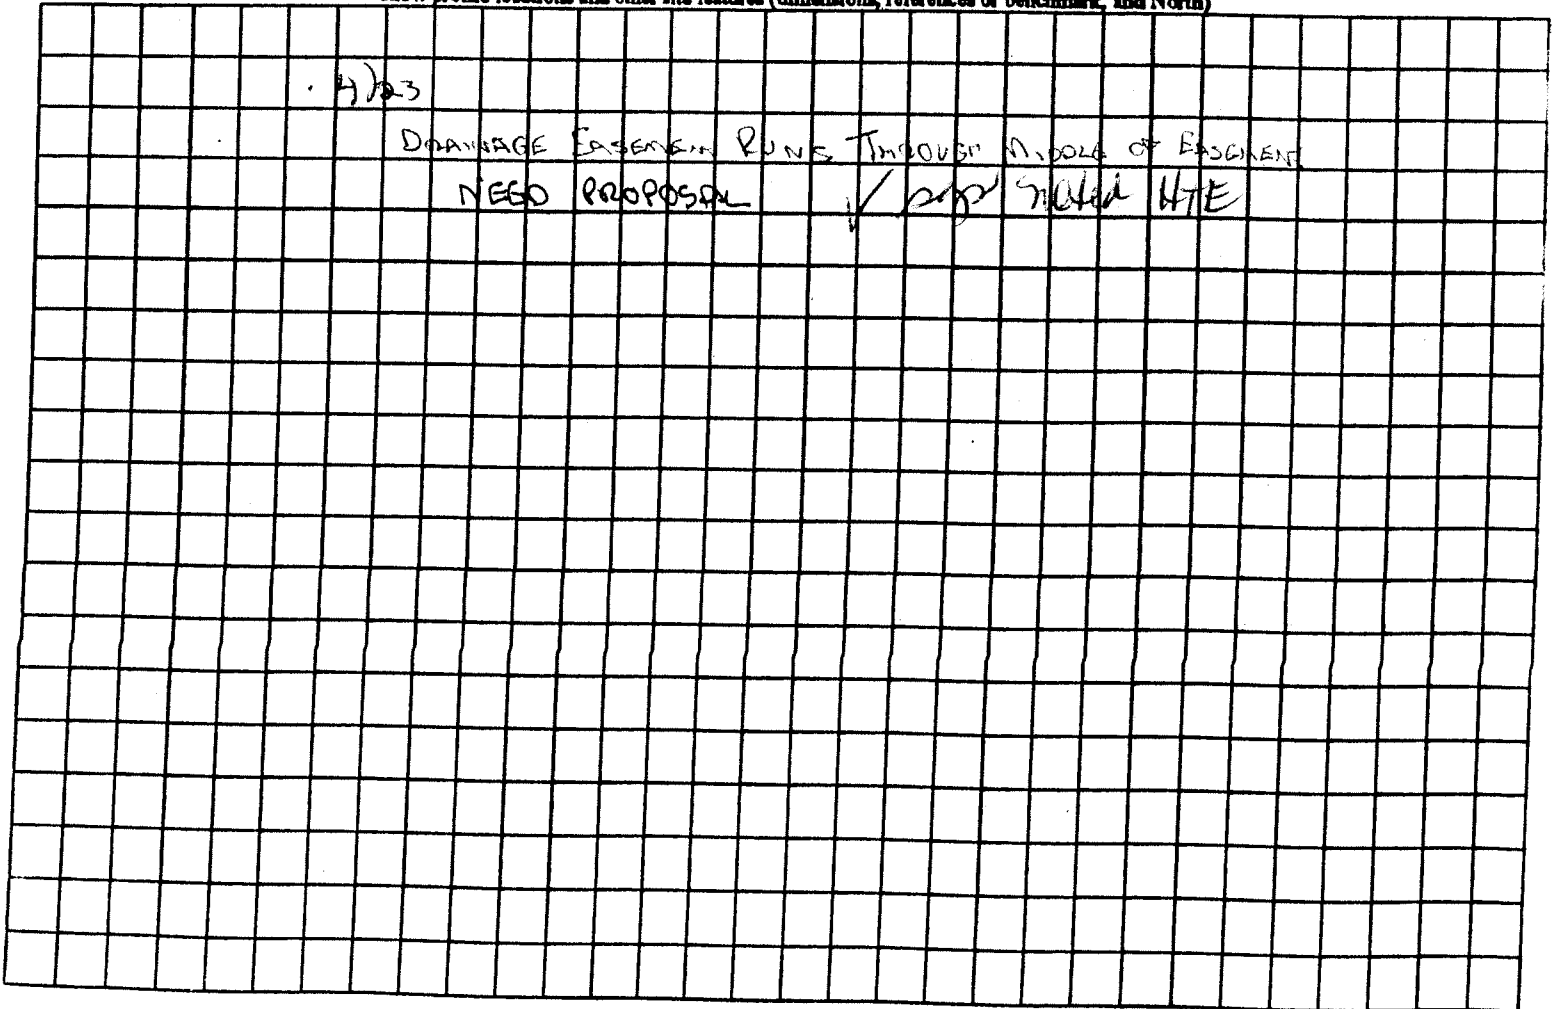 profile locations and other site features (dimensions, references or benchmark, and North)
4/23
DRAINAGE EASEMENT RUNS THROUGH MIDDLE OF EASEMENT
NEED PROPOSAL ✓ noted HTE